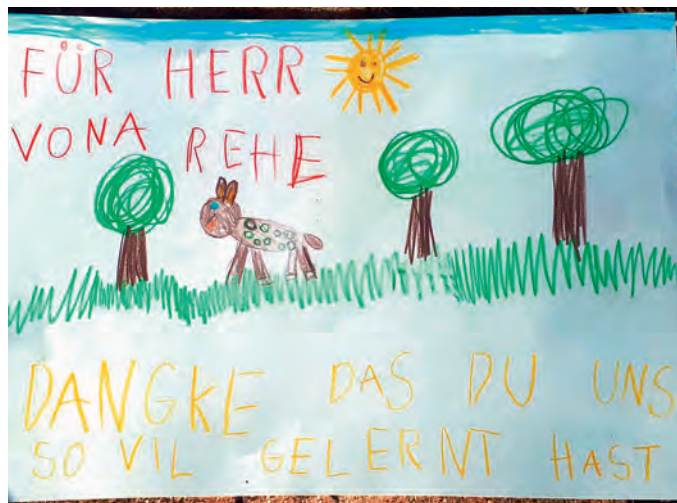 FÜR HERR
VONA REHE
DANGKE DAS DU UNS
SO VIL GELERNT HAST